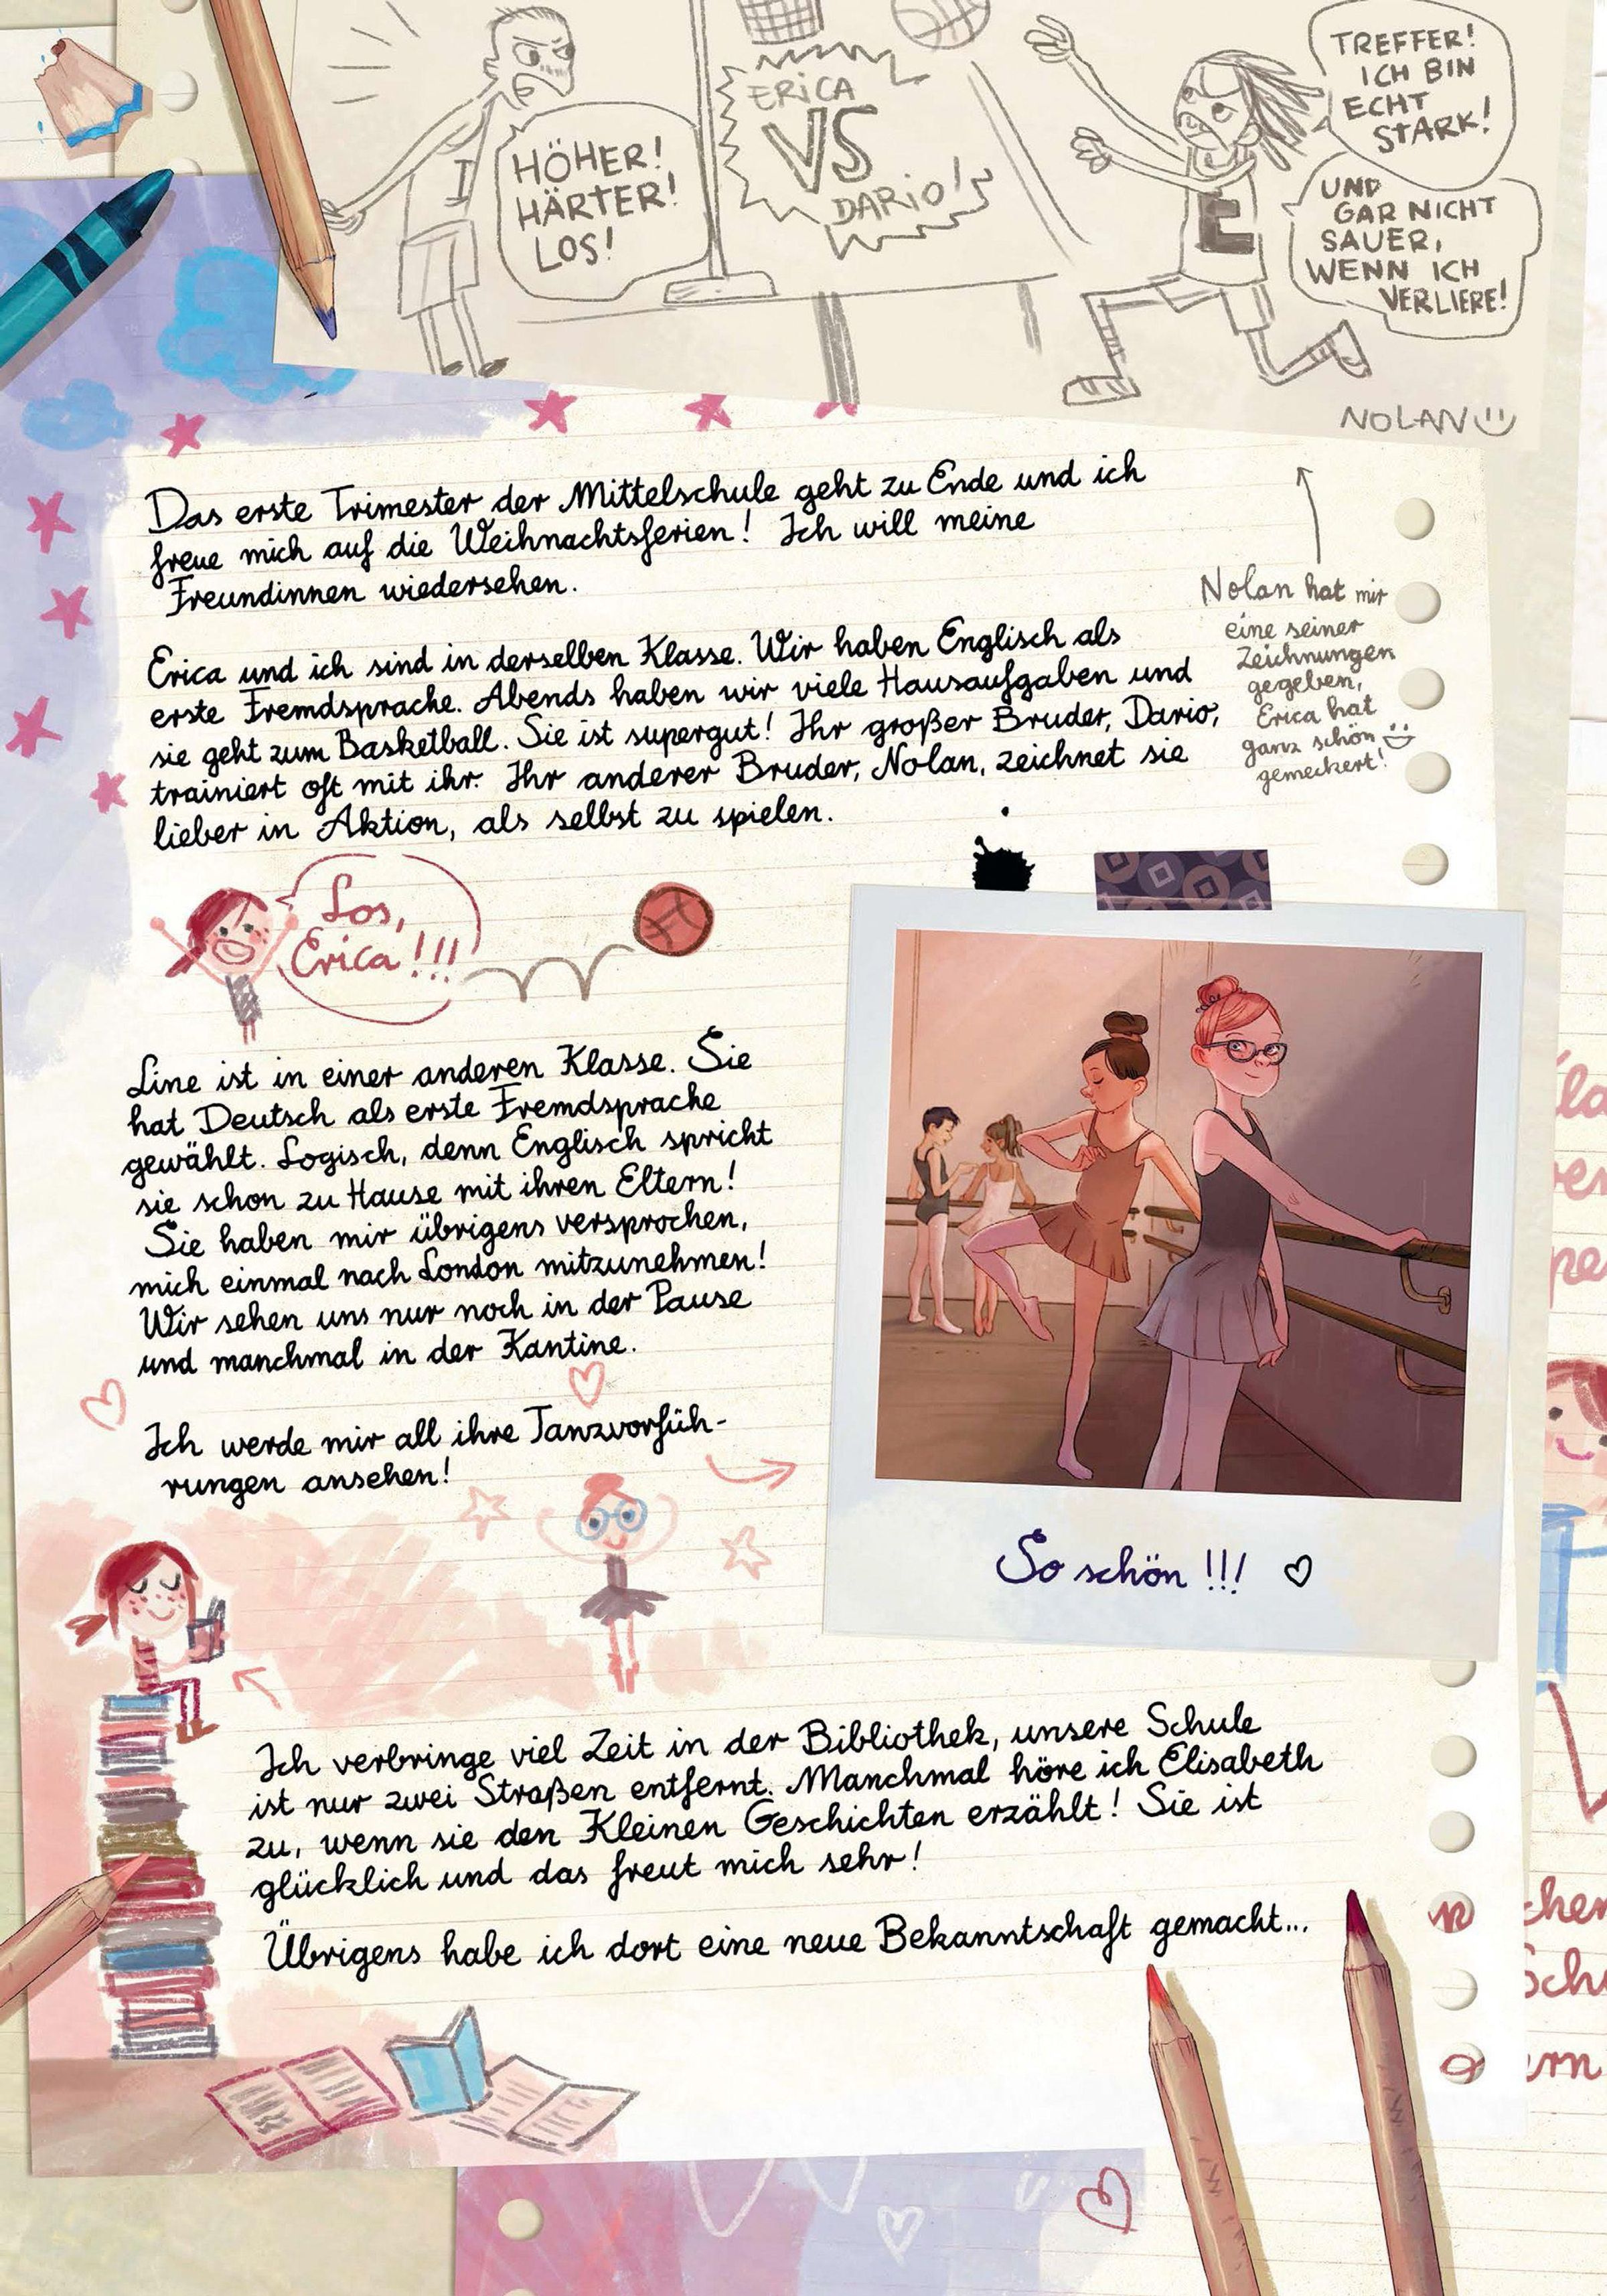 HÖHER!
HÄRTER!
LOS!
ERICA
VS
DARIO!
TREFFER!
ICH BIN
ECHT
STARK!
UND
GAR NICHT
SAUER,
WENN ICH
VERLIERE!
E
NOLAN
Das erste Trimester der Mittelschule geht zu Ende und ich
freue mich auf die Weihnachtsferien! Ich will meine
Freundinnen wiedersehen.
Nolan hat mir
eine seiner
Zeichnungen
gegeben,
Erica hat
ganz schön
gemeckert!
Erica und ich sind in derselben Klasse. Wir haben Englisch als
erste Fremdsprache. Abends haben wir viele Hausaufgaben und
sie geht zum Basketball. Sie ist supergut! Ihr großer Bruder, Dario,
trainiert oft mit ihr. Ihr anderer Bruder, Nolan, zeichnet sie
lieber in Aktion, als selbst zu spielen.
Los,
Erica!!!
Line ist in einer anderen Klasse. Sie
hat Deutsch als erste Fremdsprache
gewählt. Logisch, denn Englisch spricht
sie schon zu Hause mit ihren Eltern!
Sie haben mir übrigens versprochen,
mich einmal nach London mitzunehmen!
Wir sehen uns nur noch in der Pause
und manchmal in der Kantine.
Ich werde mir all ihre Tanzvorfüh-
rungen ansehen!
So schön!!!
Ich verbringe viel Zeit in der Bibliothek, unsere Schule
ist nur zwei Straßen entfernt. Manchmal höre ich Elisabeth
zu, wenn sie den Kleinen Geschichten erzählt! Sie ist
glücklich und das freut mich sehr!
Übrigens habe ich dort eine neue Bekanntschaft gemacht...